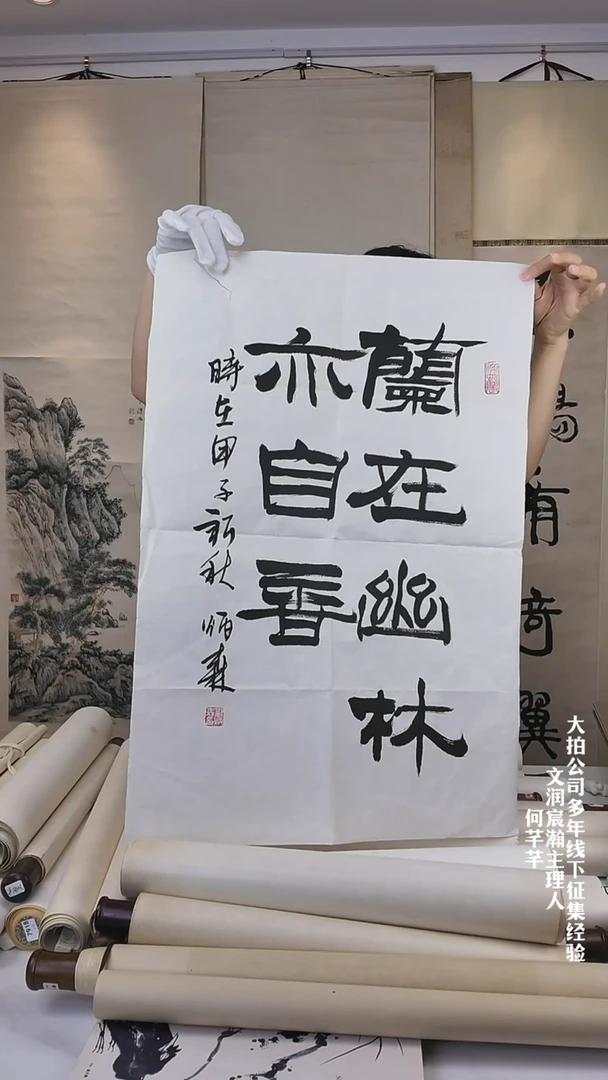 蘭在幽林
亦自香
時在甲子新秋 炳森
有
翼
大拍公司多年线下征集经验
文润宸瀚主理人
何芊芊